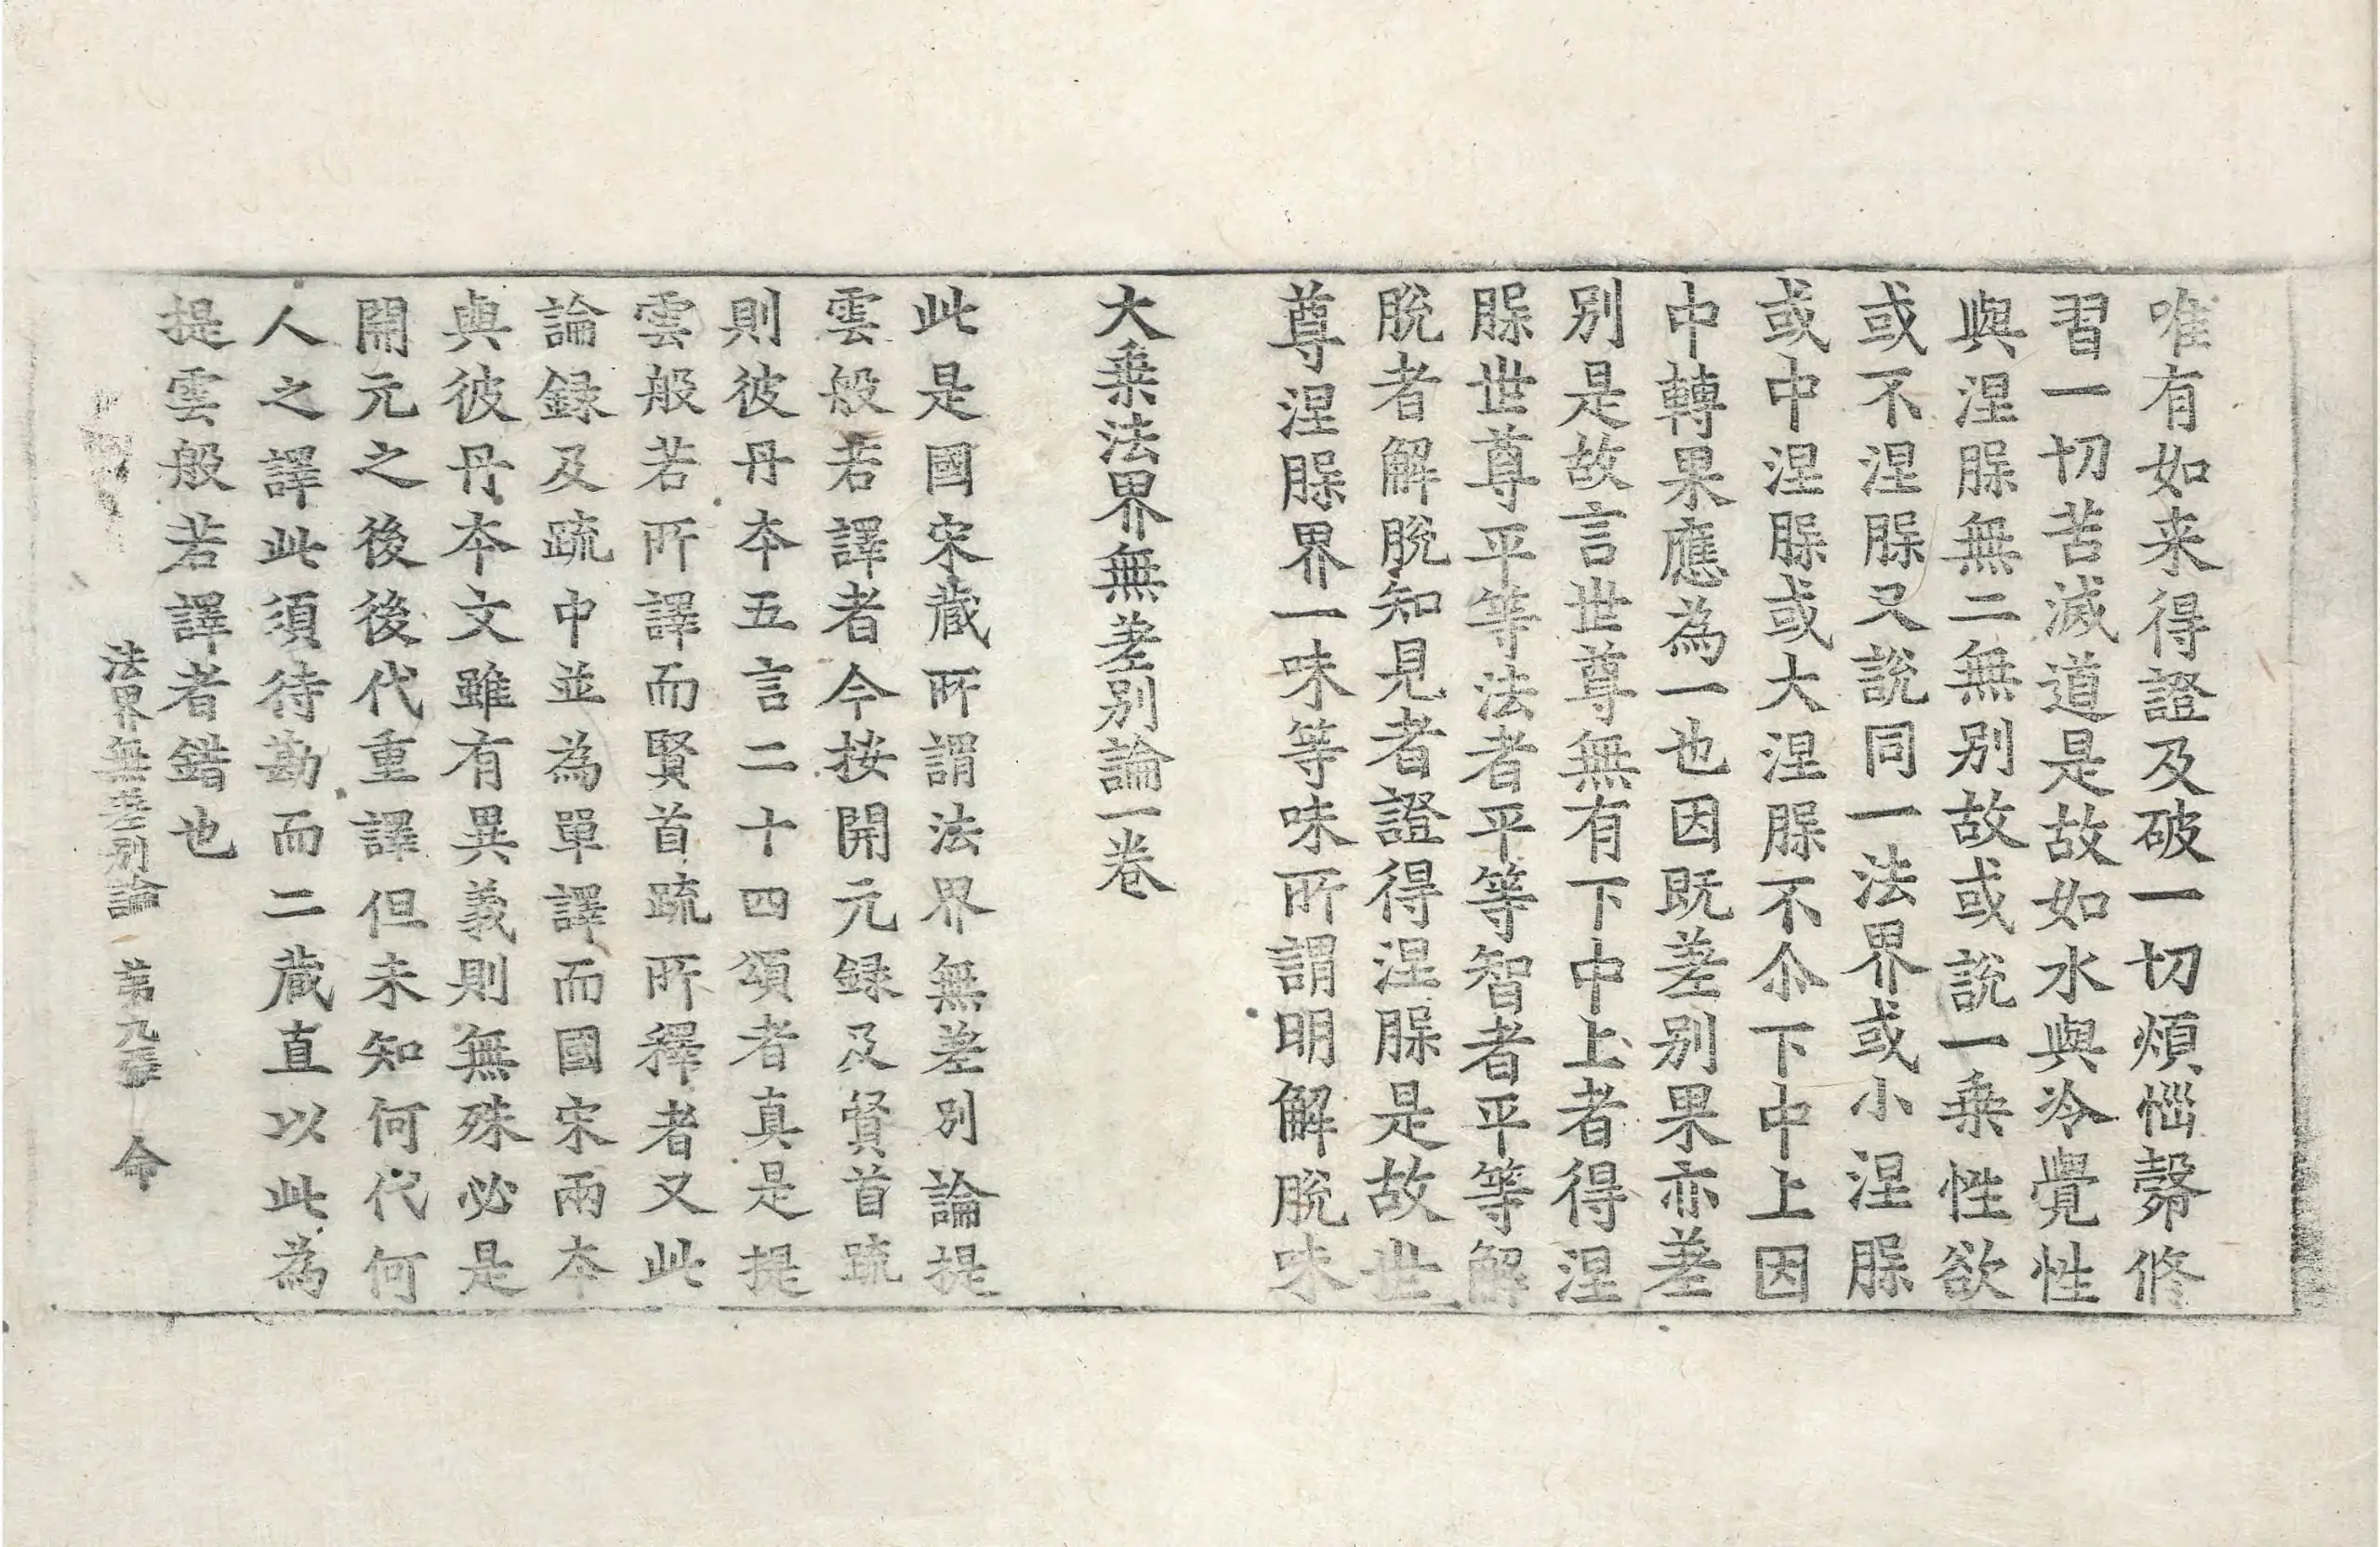 唯有如来得證及破一切煩惱髣修
習一切苦滅道是故如水與冷覺性
與涅脲無二無别故或說一乗性欲
或不涅脲又說同一法界或小涅脲
或中涅脲或大涅脲不尒下中上因
中轉果應為一也因既差别果亦差
别是故言世尊無有下中上者得涅
脲世尊平等法者平等智者平等解
脫者解脫知見者證得涅脲是故世
尊涅脲界一味等味所謂明解脫味
大乗法界無差别論一卷
此是國宋蔵所謂法界無差別論提
雲般若譯者今按開元録及賢首疏
則彼丹本五言二十四頌者真是提
雲般若所譯而賢首疏所釋者又此
論録及疏中並為單譯而國宋兩本
與彼丹本文雖有異義則無殊必是
開元之後後代重譯但未知何代何
人之譯此須待勘而二蔵直以此為
提雲般若譯者錯也
法界無差别論 第九張 命